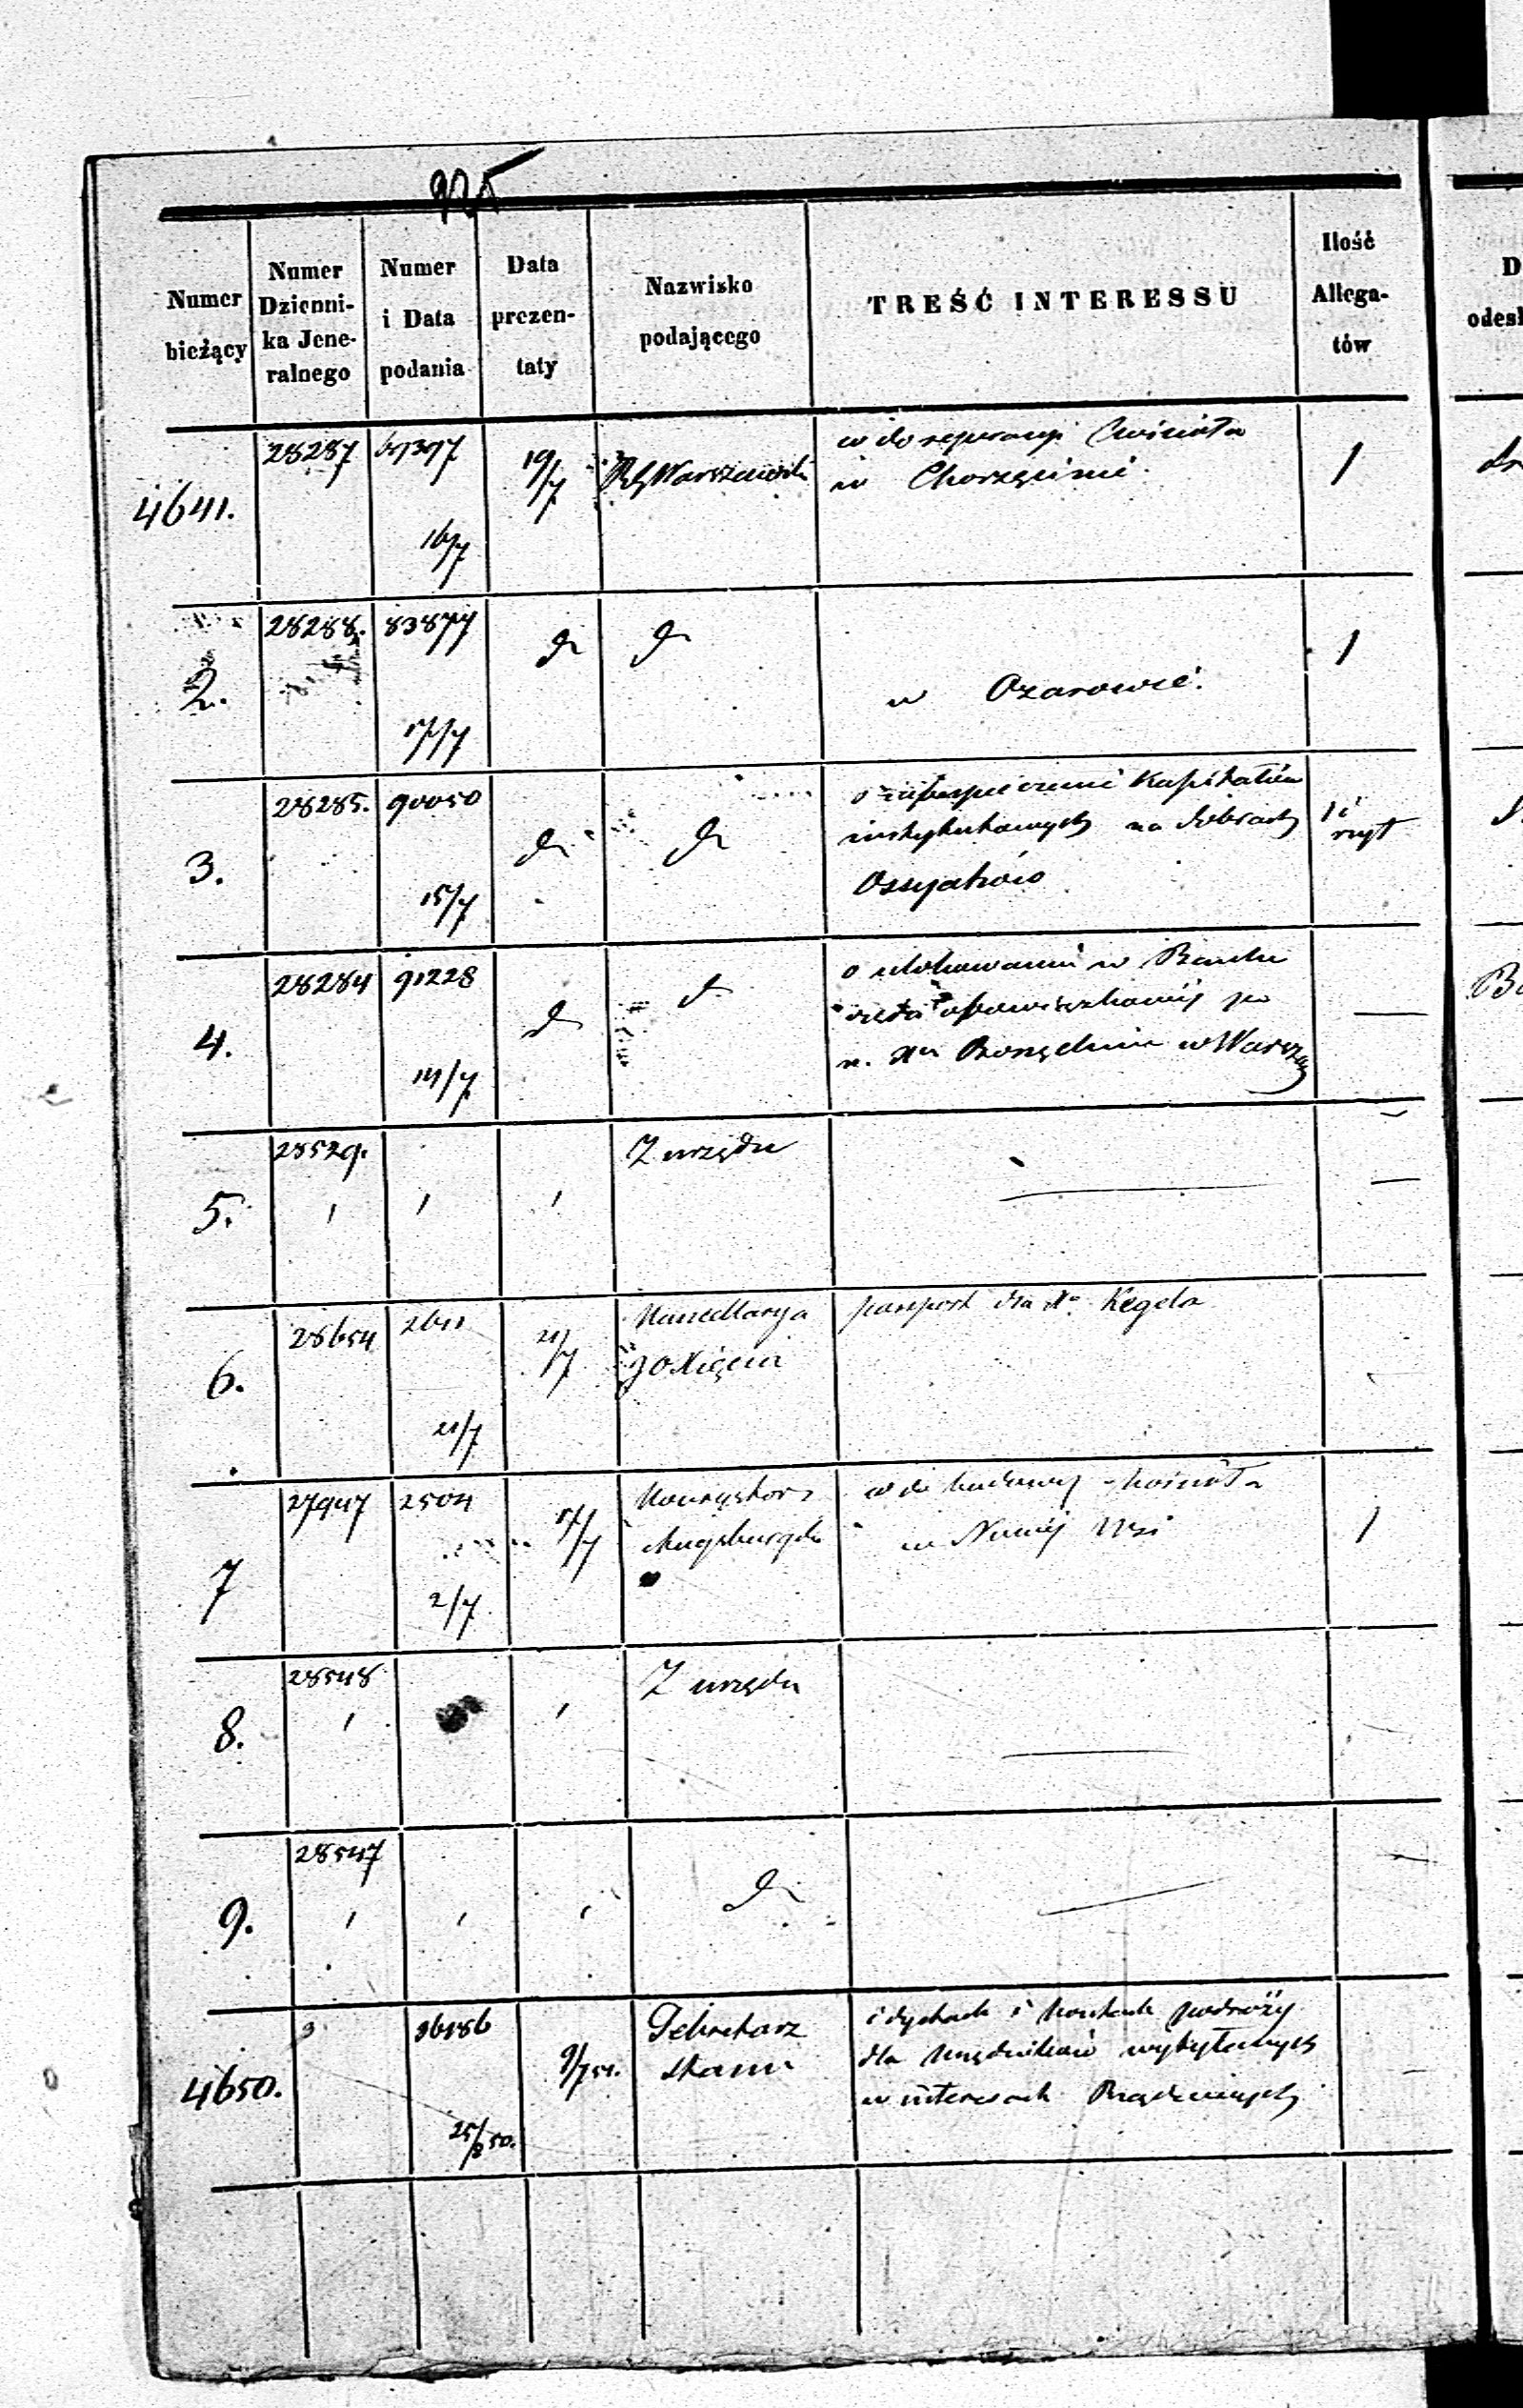 925
Numer bieżący
Numer Dzienni- ka Jene- ralnego
Numer i Data podania
Data prezen- taty
Nazwisko podającego
TREŚĆ INTERESSU
Ilość Allega- tów
D
odesł
4641.
28287
16/7
19/7
Warszawski
w do reperacyi Kościoła
w Chorzęcinie
1
2.
28288.
83877
17/7
d
d
w Ożarowie.
1
3.
28285.
90050
15/7
d
d
o zabespieczenie Kapitałów
instytutowych na dobrach
1 i
rszyt
4.
28284
91228
14/7
d
d
o ulokowanie w Banku
w Warsza
—
5.
28529.
Z urzędu
—
6.
28654
2611
21/7
21/7
Kancellarya
JO Xięcia
paszport dla Xa Kegela
7
27947
2504
2/7
17/7
Konsystorz
Augsburgski
w do budowy Kościoła
w Nowej Wsi
1
8.
28548
Z urzędu
—
9.
28547
d
—
4650.
36186
25/8 50.
9/7 51.
Sekretarz
Stanu
i kosztach podróży
dla Urzędników wysyłanych
w interesach Rządowych